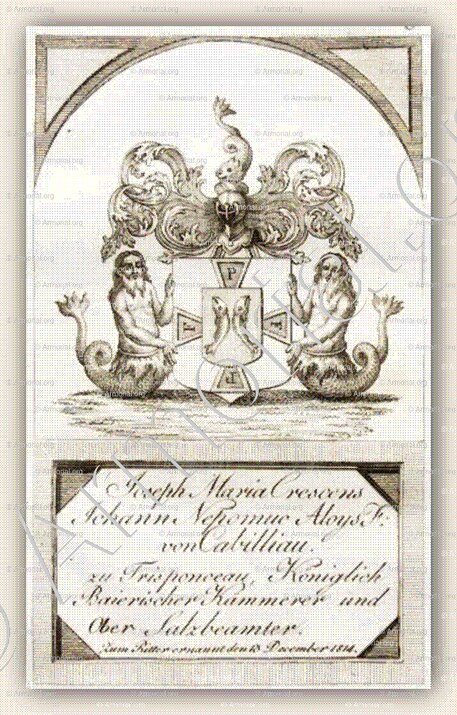 P
L
F
P
Joseph Maria Crescens
Johann Nepomuc Aloys F:
von Cabilliau.
zu Trisponceau, Königlich
Baierischer Kammerer und
Ober Salzbeamter.
Zum Ritter ernannt den 13 December 1814.
© Armorial.org